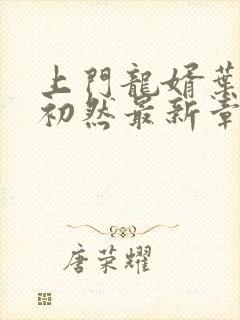 上門龍婿葉
初然最新章
唐荣耀